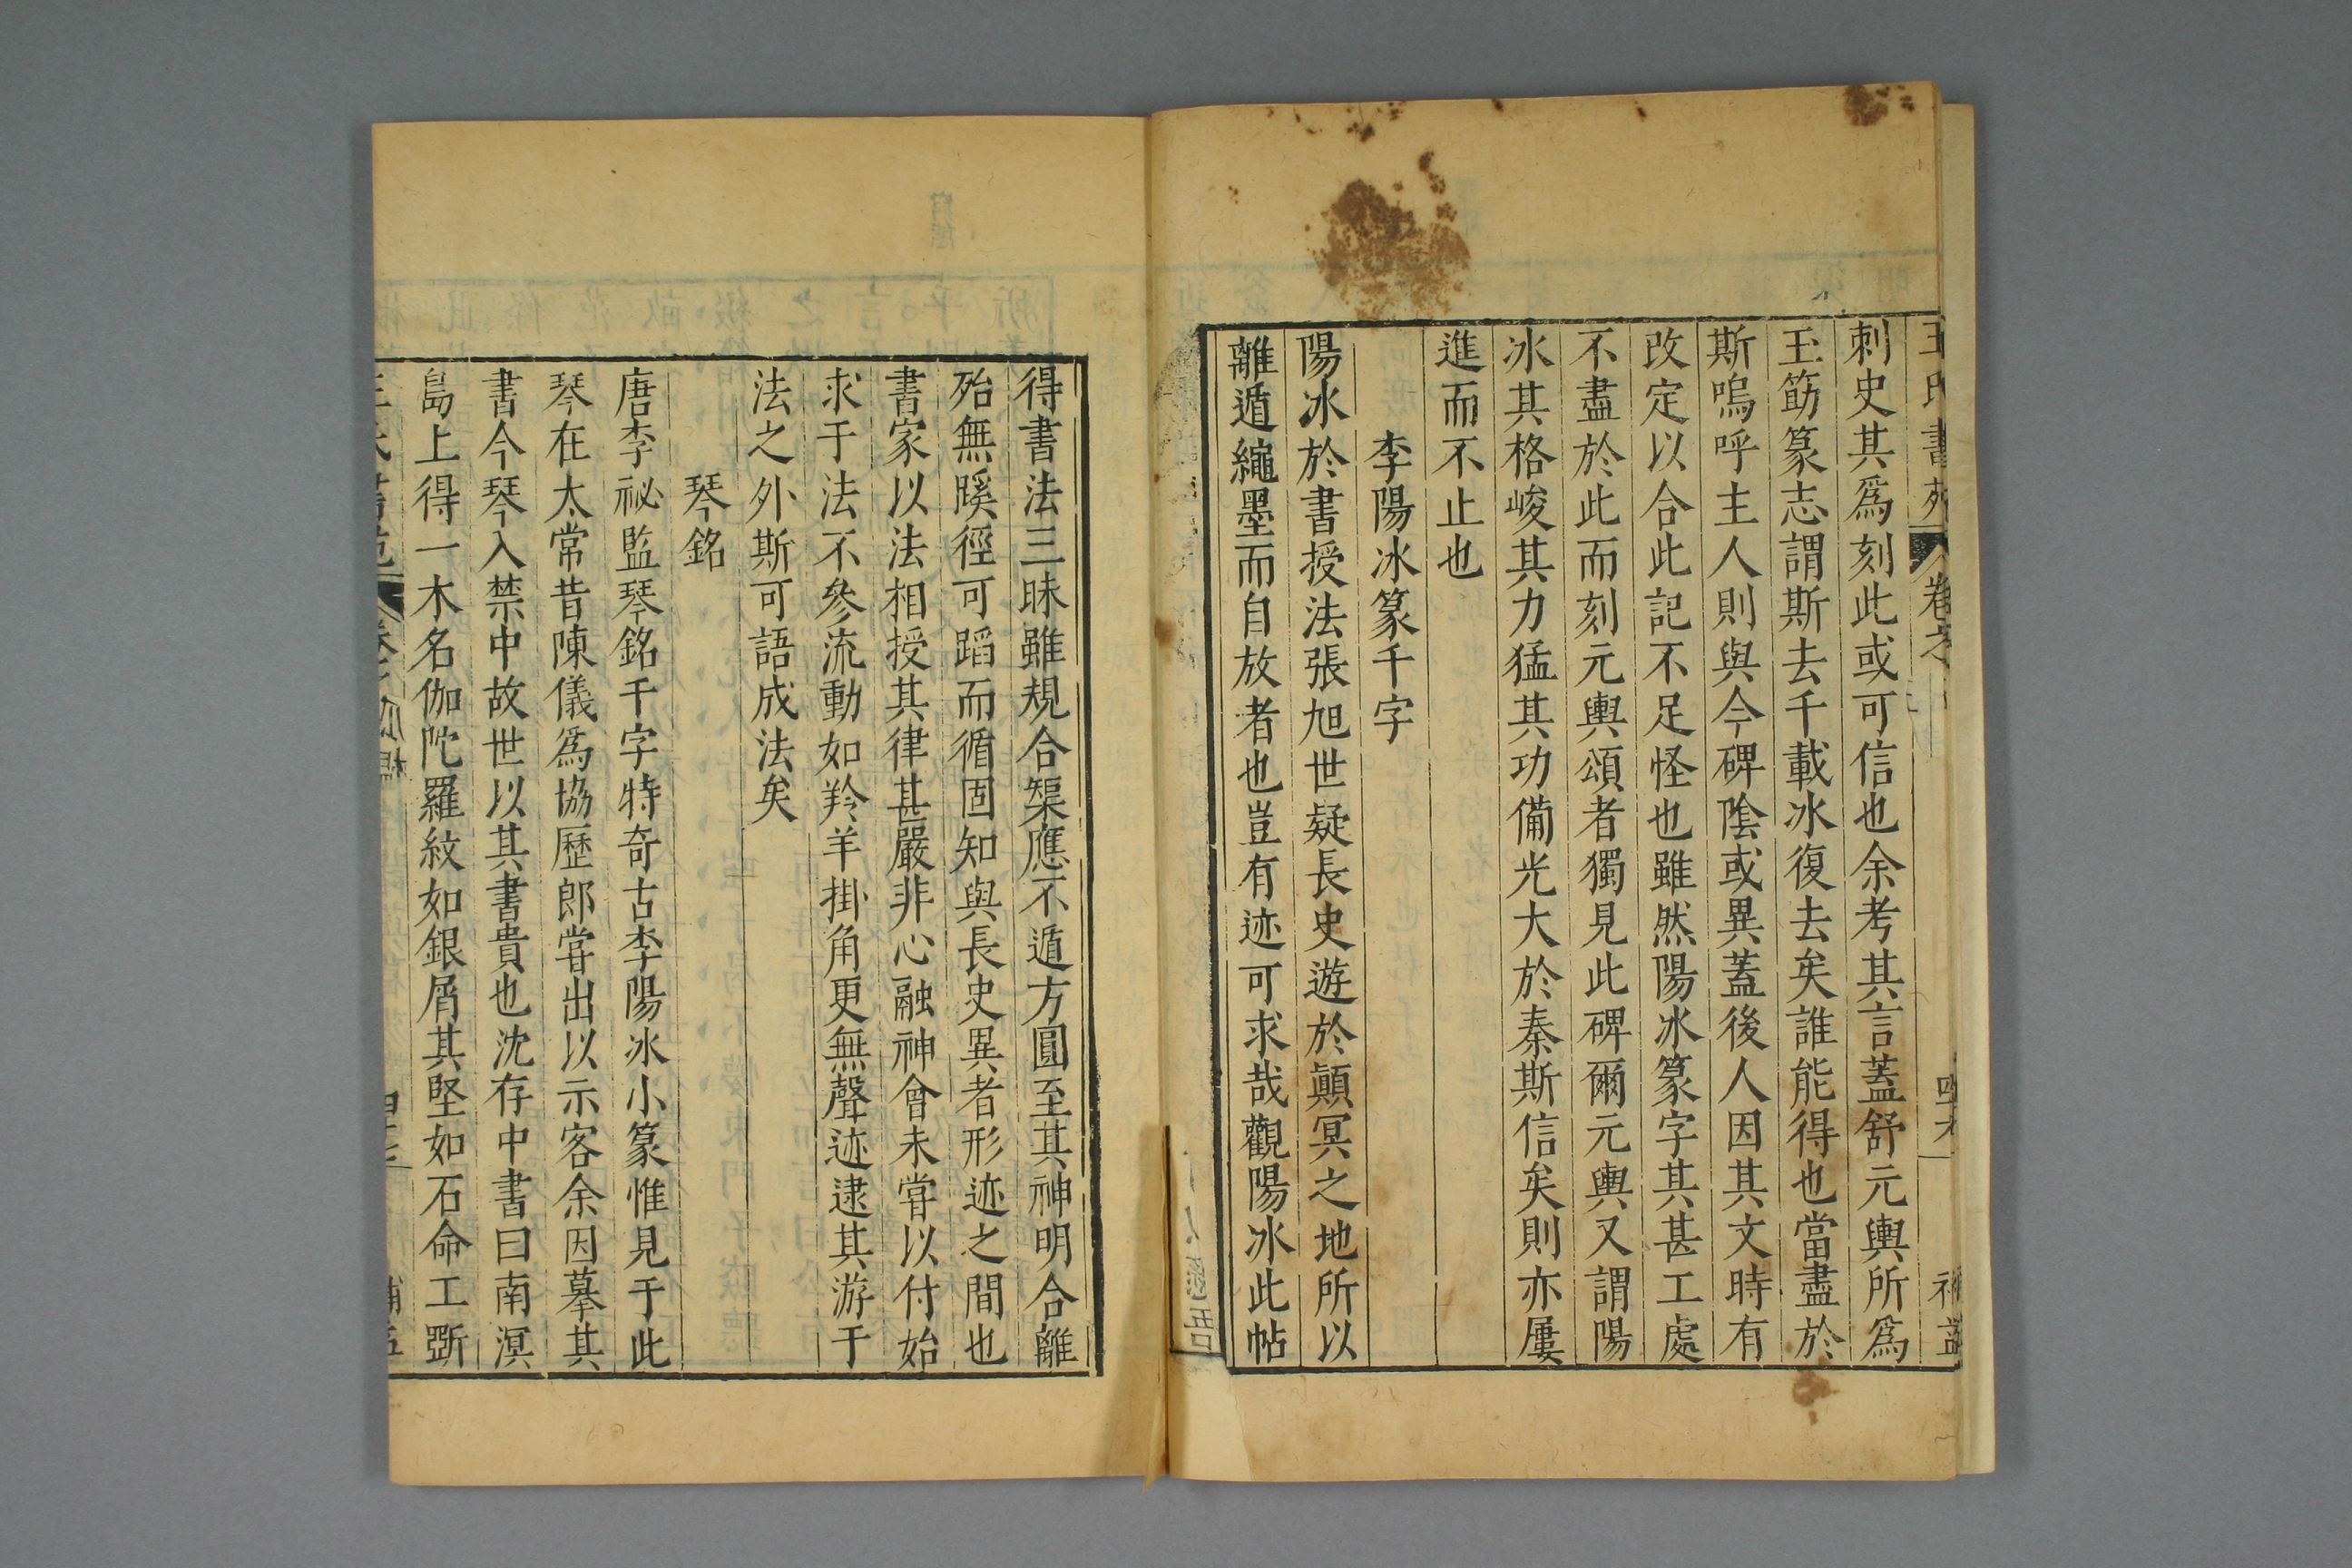 刺史其爲刻此或可信也余考其言蓋舒元輿所爲
玉筯篆志謂斯去千載冰復去矣誰能得也當盡於
斯嗚呼主人則與今碑陰或異蓋後人因其文時有
改定以合此記不足怪也雖然陽冰篆字其甚工處
不盡於此而刻元輿頌者獨見此碑爾元輿又謂陽
冰其格峻其力猛其功備光大於秦斯信矣則亦屢
進而不止也
李陽冰篆千字
陽冰於書授法張旭世疑長史遊於顛冥之地所以
離遁繩墨而自放者也豈有迹可求哉觀陽冰此帖
得書法三昧雖規合榘應不遁方圓至其神明合離
殆無蹊徑可蹈而循固知與長史異者形迹之間也
書家以法相授其律甚嚴非心融神會未甞以付始
求于法不參流動如羚羊掛角更無聲迹逮其游于
法之外斯可語成法矣
琴銘
唐李祕監琴銘千字特奇古李陽冰小篆惟見于此
琴在太常昔陳儀爲協歷郎甞出以示客余因摹其
書今琴入禁中故世以其書貴也沈存中書曰南溟
島上得一木名伽陀羅紋如銀屑其堅如石命工斲